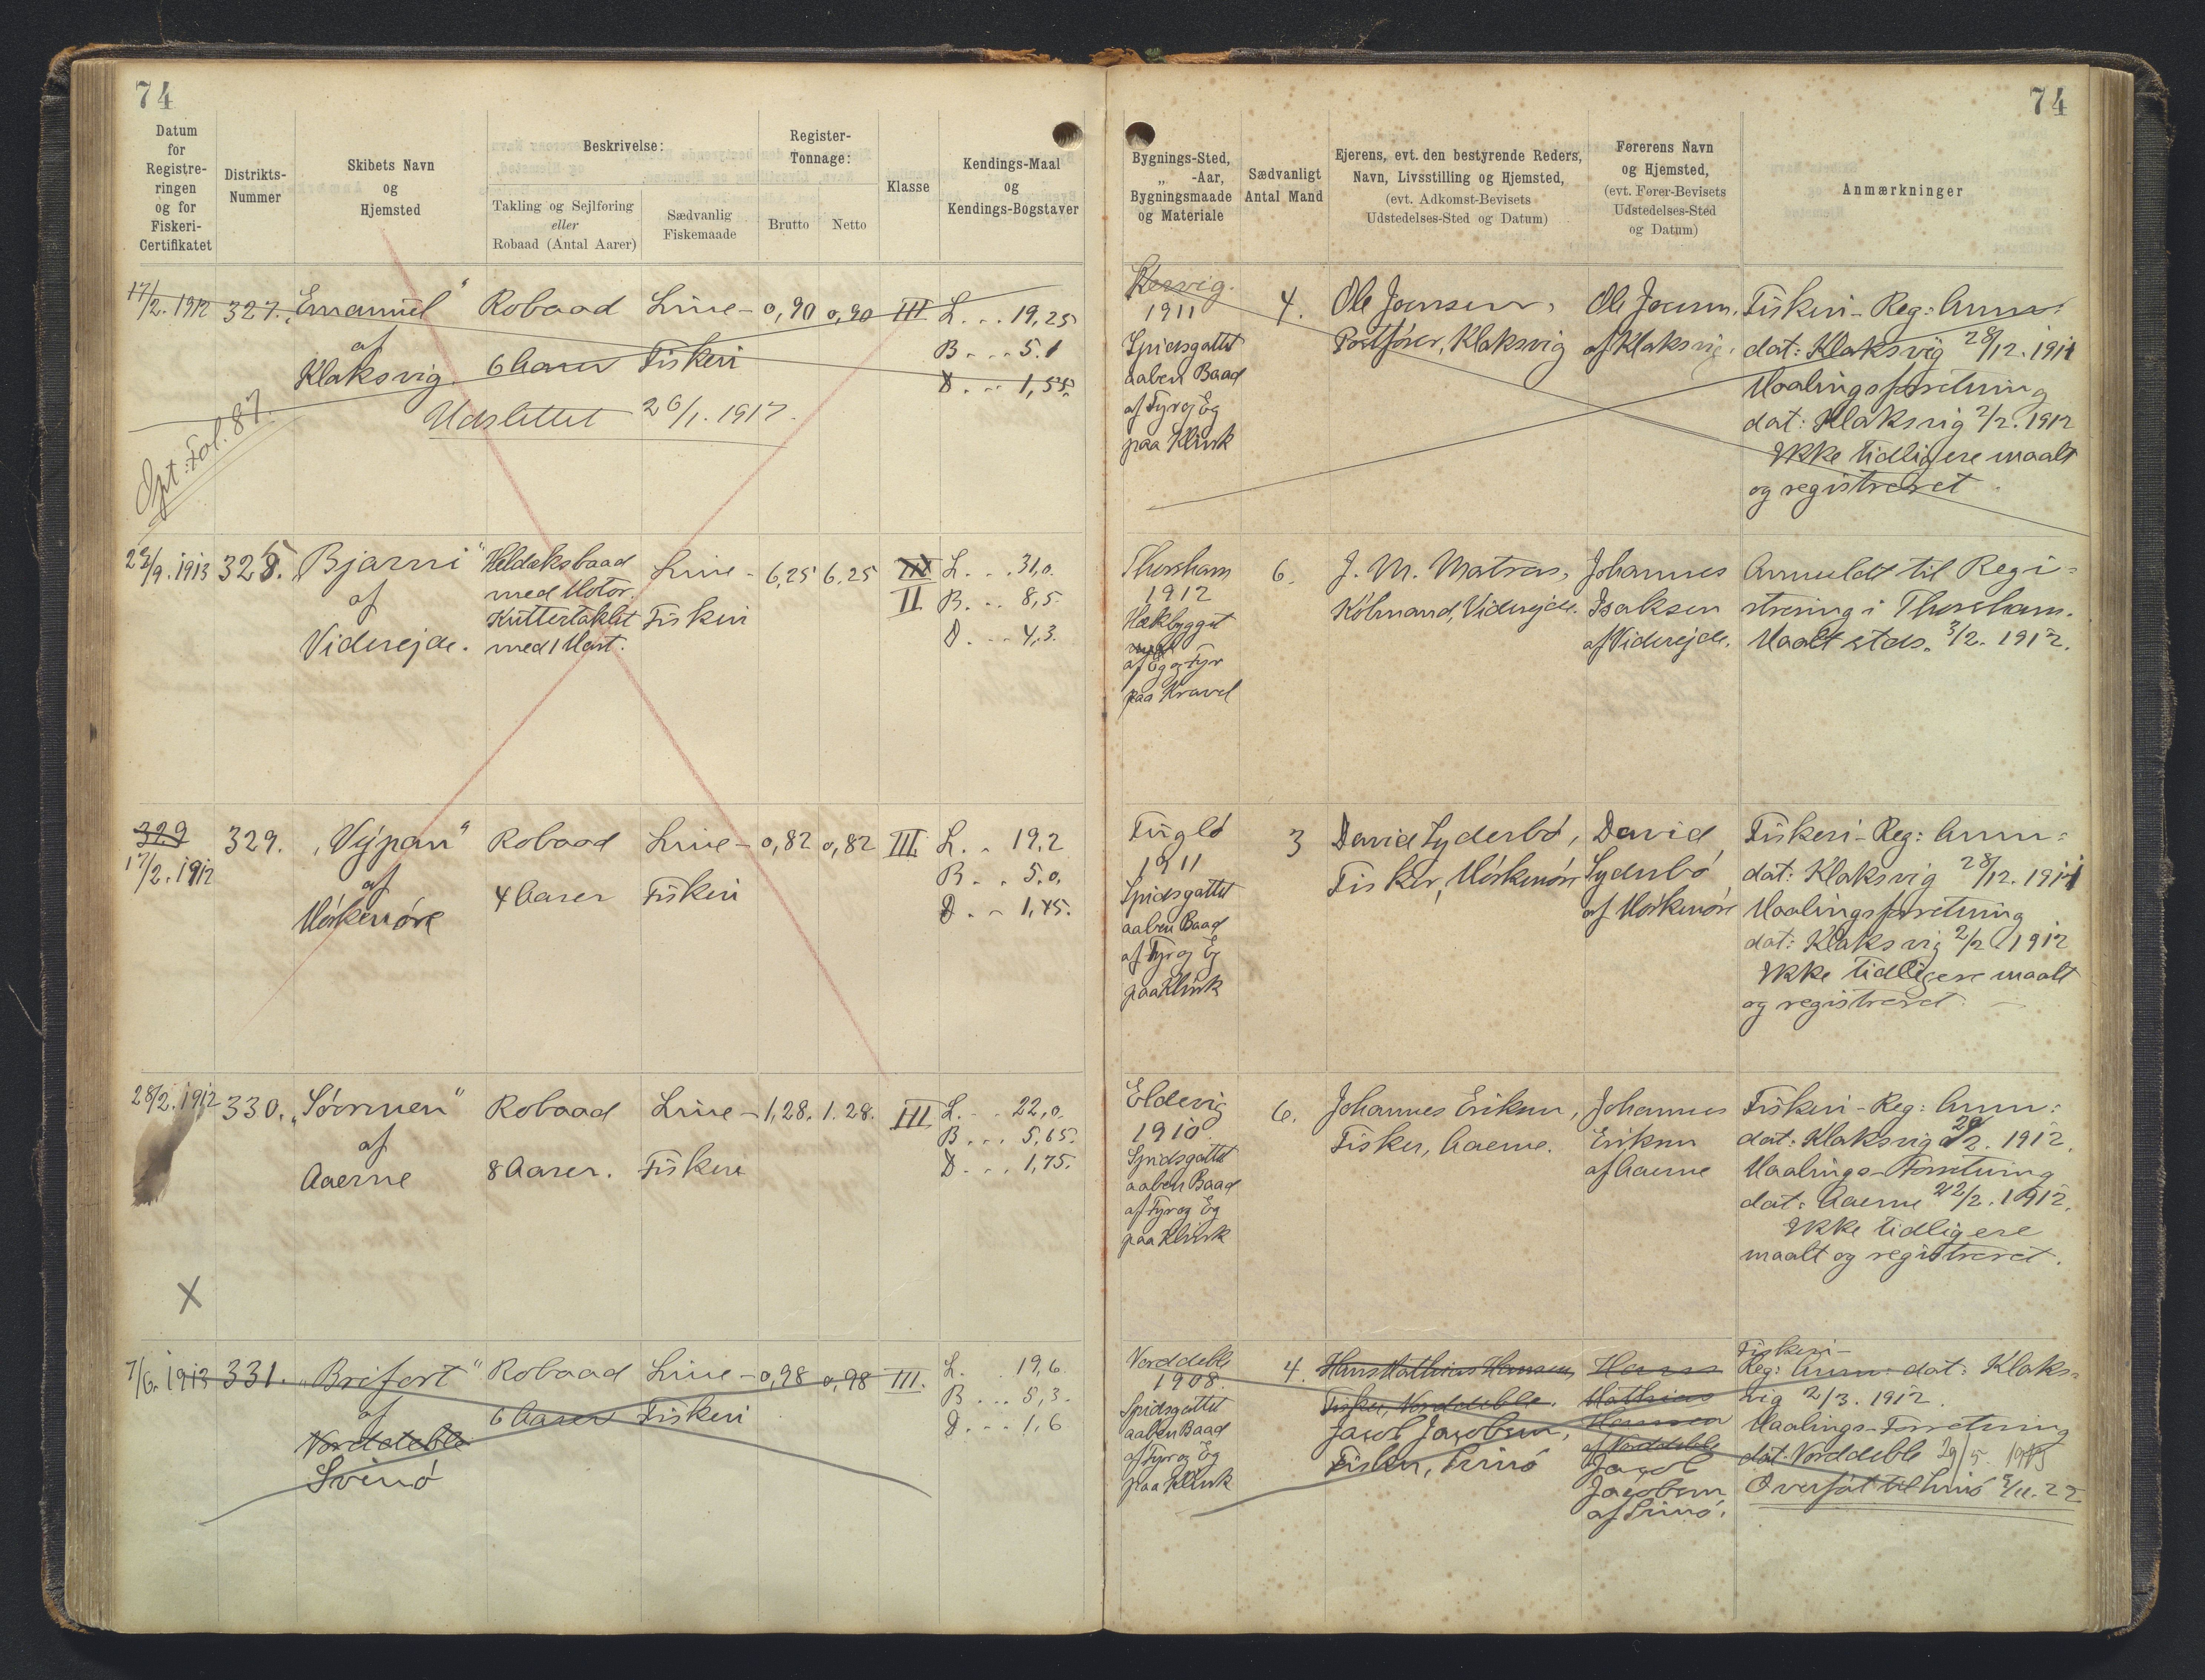 74
Datum
for
Registre-
ringen
og for
Fiskeri-
Certifikatet
Distrikts-
Nummer
Skibets Navn
og
Hjemsted
Beskrivelse:
Takling og Sejlføring
eller
Robaad (Antal Aarer)
Sædvanlig
Fiskemaade
Register-
Tonnage:
Brutto
Netto
Klasse
Kendings-Maal
og
Kendings-Bogstaver
17/2. 1912 327. „Emanuel“ Robaad Line- 0,90 0,90 III L. . . 19,25
af
Klaksvig. 6 Aarer Fiskeri
B. . . 5.1
D. . . 1,55.
Udslettet 26/1. 1917.
Fol. 87.
1913 328. „Bjarni“
af
Viderejde.
Heldæksbaad
med Motor.
Kuttertaklet
med 1 Mast.
Line-
Fiskeri
6,25 6,25
III
II
L. . . 31,0.
B. . . 8,5.
D. . . 4,3.
329
17/2. 1912
329. „Výpan“
af
Mörkenöre
Robaad
4 Aarer
Line-
Fiskeri
0,82 0,82 III.
L. . 19,2
B. . . 5,0.
D. . . 1,45.
28/2. 1912 330. „Sörmen“
af
Aaerne
Robaad
8 Aarer.
Line-
Fiskeri
1,28. 1.28. III.
L. . . 22,0.
B. . . 5,65.
D. . . 1,75.
X
7/6. 1913 331. „Brefort“
af
Norddeble
Svinö
Robaad
6 Aarer
Line-
Fiskeri
0,98 0,98 III.
L. . . 19,6.
B. . . 5,3.
D. . . 1,6
74
Bygnings-Sted,
„ -Aar,
Bygningsmaade
og Materiale
Sædvanligt
Antal Mand
Ejerens, evt. den bestyrende Reders,
Navn, Livsstilling og Hjemsted,
(evt. Adkomst-Bevisets
Udstedelses-Sted og Datum)
Førerens Navn
og Hjemsted,
(evt. Fører-Bevisets
Udstedelses-Sted
og Datum)
Anmærkninger
1911
Spidsgattet
aaben Baad
af Fyr og Eg
paa Klink
4.
Ole Joensen,
Postfører, Klaksvig
Ole Joensen,
af Klaksvig.
Fiskeri-Reg: Anm:
dat: Klaksvig 28/12. 1911
Maalingsforretning
dat: Klaksvig 2/2. 1912
Ikke tidligere maalt
og registreret
Thorshavn
1912
Hækbygget
af Eg og Fyr
paa Kravel
6.
J. M. Matras,
Købmand, Viderejde.
Johannes
Isaksen
af Viderejde.
Anmeldt til Regi-
strering i Thorshavn.
Maalt stds. 3/2. 1912.
Fuglö
1911
Spidsgattet
aaben Baad
af Fyr og Eg
paa Klink
3
David Lyderbö,
Fisker, Mörkenöre
David
Lyderbö
af Mörkenöre
Fiskeri-Reg: Anm:
dat: Klaksvig 28/12. 1911
Maalingsforretning
dat: Klaksvig 2/2 1912
Ikke tidligere maalt
og registreret.
Eldevig
1910.
Spidsgattet
aaben Baad
af Fyr og Eg
paa Klink
6.
Johannes Eriksen,
Fisker, Aaerne.
Johannes
Eriksen
af Aaerne
Fiskeri-Reg: Anm:
dat: Klaksvig 1912.
Maalings-Forretning
dat: Aaerne 22/2. 1912.
Ikke tidligere
maalt og registreret.
Norddeble
1908.
Spidsgattet
aaben Baad
af Fyr og Eg
paa Klink
4.
Hans Mathias Hansen
Fisker, Norddeble.
Jacob Jacobsen,
Fisker, Svinö
Hans
Mathias
Hansen
af Norddeble
Jacob
Jacobsen
af Svinö.
Fiskeri-
Reg: Anm: dat: Klaks-
vig 2/3. 1912.
Maalings-Forretning
dat: Norddeble 29/5. 1913
Overført til Svinö 9/11. 22